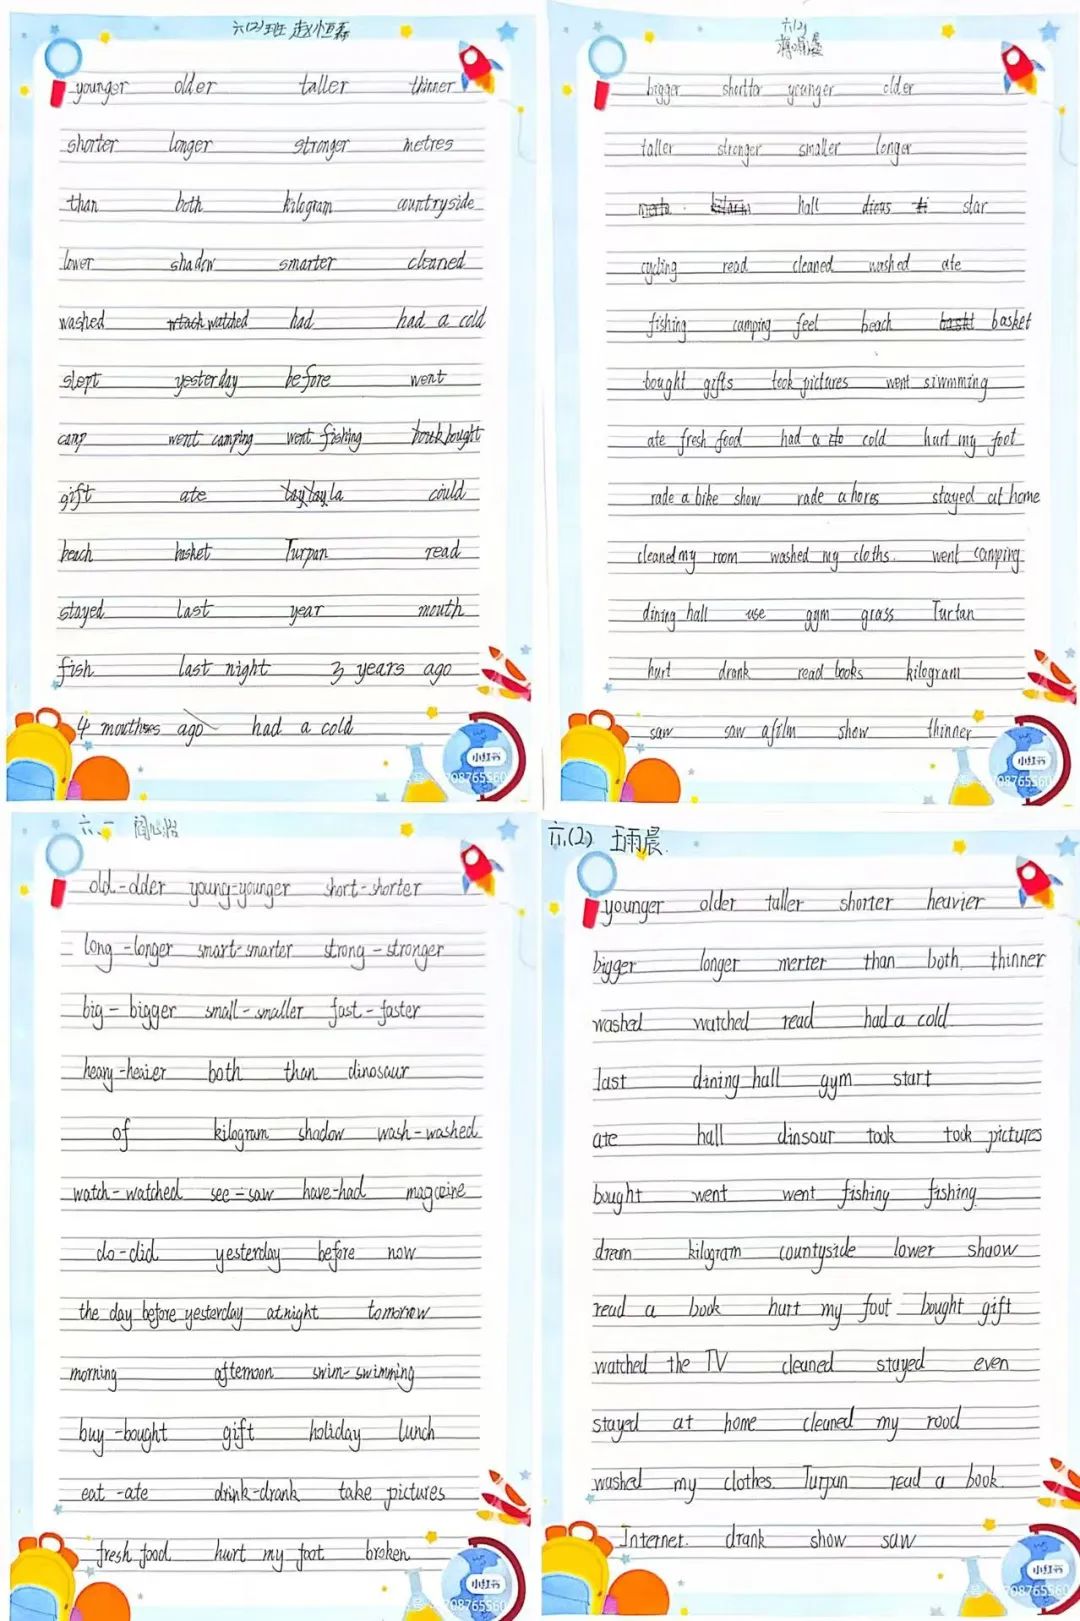 六(2)班 赵恒春
younger older taller thinner
shorter longer stronger metres
than both kilogram countryside
lower shadow smarter cleaned
washed watched had had a cold
slept yesterday before went
camp went camping went fishing bought
gift ate could
beach basket Turpan read
stayed last year mouth
fish last night 3 years ago
4 ago had a cold
小红书
708765560
六(2)
bigger younger older
taller stronger smaller longer
hall star
cycling read cleaned washed ate
fishing camping feel beach basket
bought gifts took pictures went siwmming
ate fresh food had a cold hurt my foot
rade a bike show rade a hores stayed at home
cleaned my room washed my cloths. went camping
dining hall use gym grass Turtan
hurt drank read books kilogram
saw saw a film show thinner
小红书
708765560
六.一
old-older young-younger short-shorter
long-longer smart-smarter strong-stronger
big-bigger small-smaller fast-faster
heavy-heaier both than dinosaur
of kilogram shadow wash-washed
watch-watched see-saw have-had
do-did yesterday before now
the day before yesterday at night tomorrow
morning afternoon swim-swimming
buy-bought gift holiday lunch
eat-ate drink-drank take pictures
fresh food hurt my foot broken
小红书
708765560
六.(2) 王雨晨
younger older taller shorter heavier
bigger longer merter than both. thinner
washed watched read had a cold
last dining hall gym start
ate hall dinsour took took pictures
bought went went fishing fishing
dream kilogram countyside lower
read a book hurt my foot bought gift
watched the TV cleaned stayed even
stayed at home cleaned my rood
washed my clothes. Turpan read a book.
Internet. drank show saw
小红书
708765560